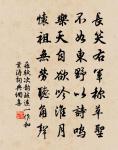 長笑右軍稱草聖
不如東野以詩鳴
樂天自欲吟淮月
懷祖無勞聽角聲